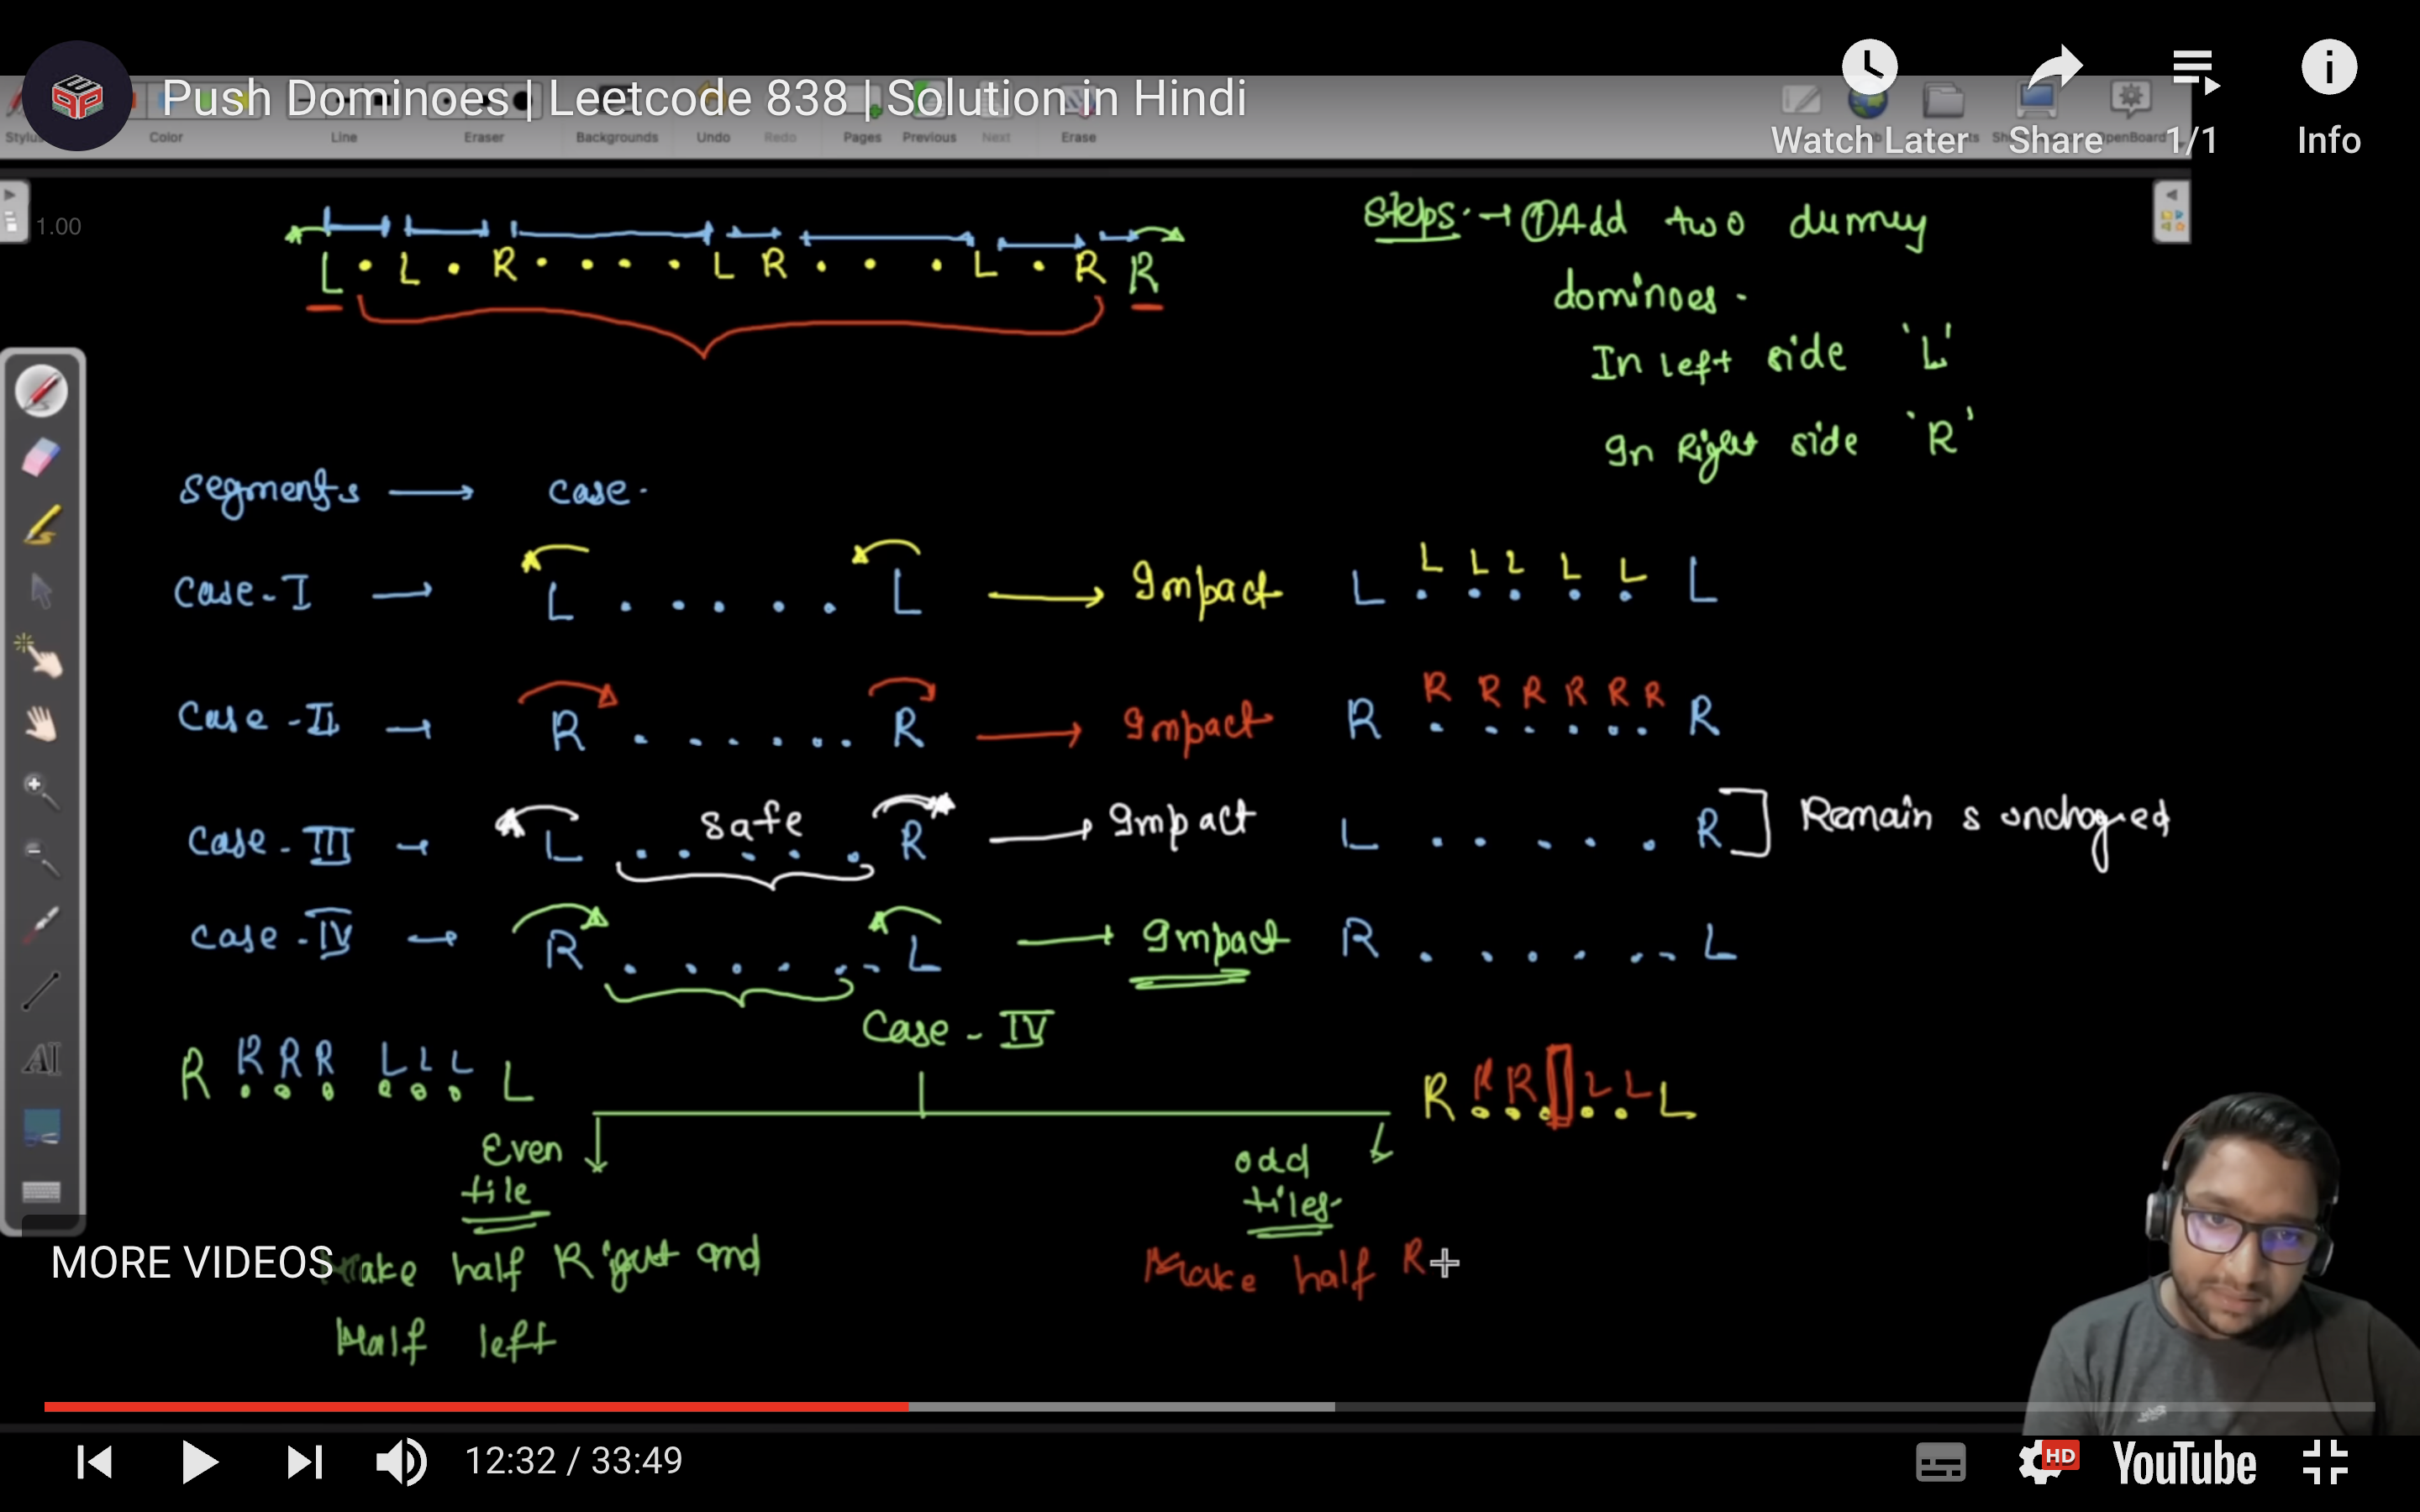 Push Dominoes | Leetcode 838 | Solution in Hindi
Watch Later
Share
1/1
Info
Color
Line
Eraser
Backgrounds
Undo
Redo
Pages
Previous
Next
Erase
1.00
L . L . R . . . . L R . . . L . R R
Steps → ① Add two dummy
dominoes.
In left side 'L'
In Right side 'R'
segments → case.
Case-I → L . . . . . L → Impact L . . . . . L
L L L L L
Case-II → R . . . . . . R → Impact R . . . . . . R
R R R R R R
Case-III → L . . . . . R → Impact L . . . . . R
safe
Remain s unchanged
Case-IV → R . . . . . . L → Impact R . . . . . . L
Case-IV
R R R R L L L L
R R R L L L
Even
tile
Make half Right and
Half left
odd
tiles
Make half R
MORE VIDEOS
12:32 / 33:49
HD
YouTube